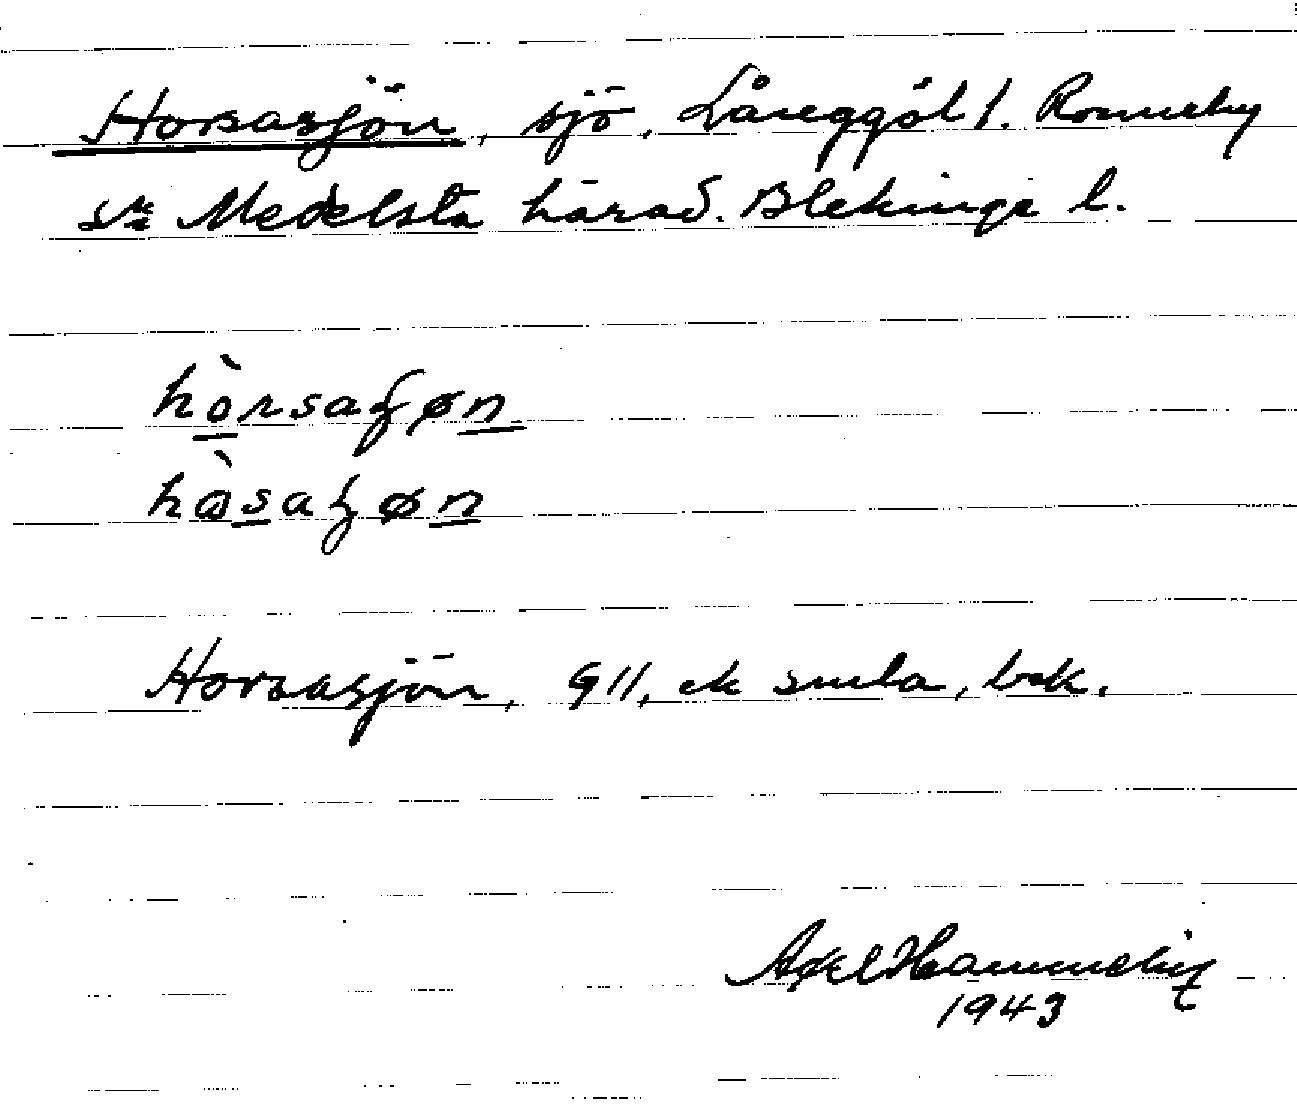 Horsasjön, sjö, Låreggöl l. Ronneby
sn Medelsta härad. Blekinge l.
hòrsaʃøn
hòsaʃøn
Horsasjön, GII, ek smla, bok.
Axel Hammelin
1943